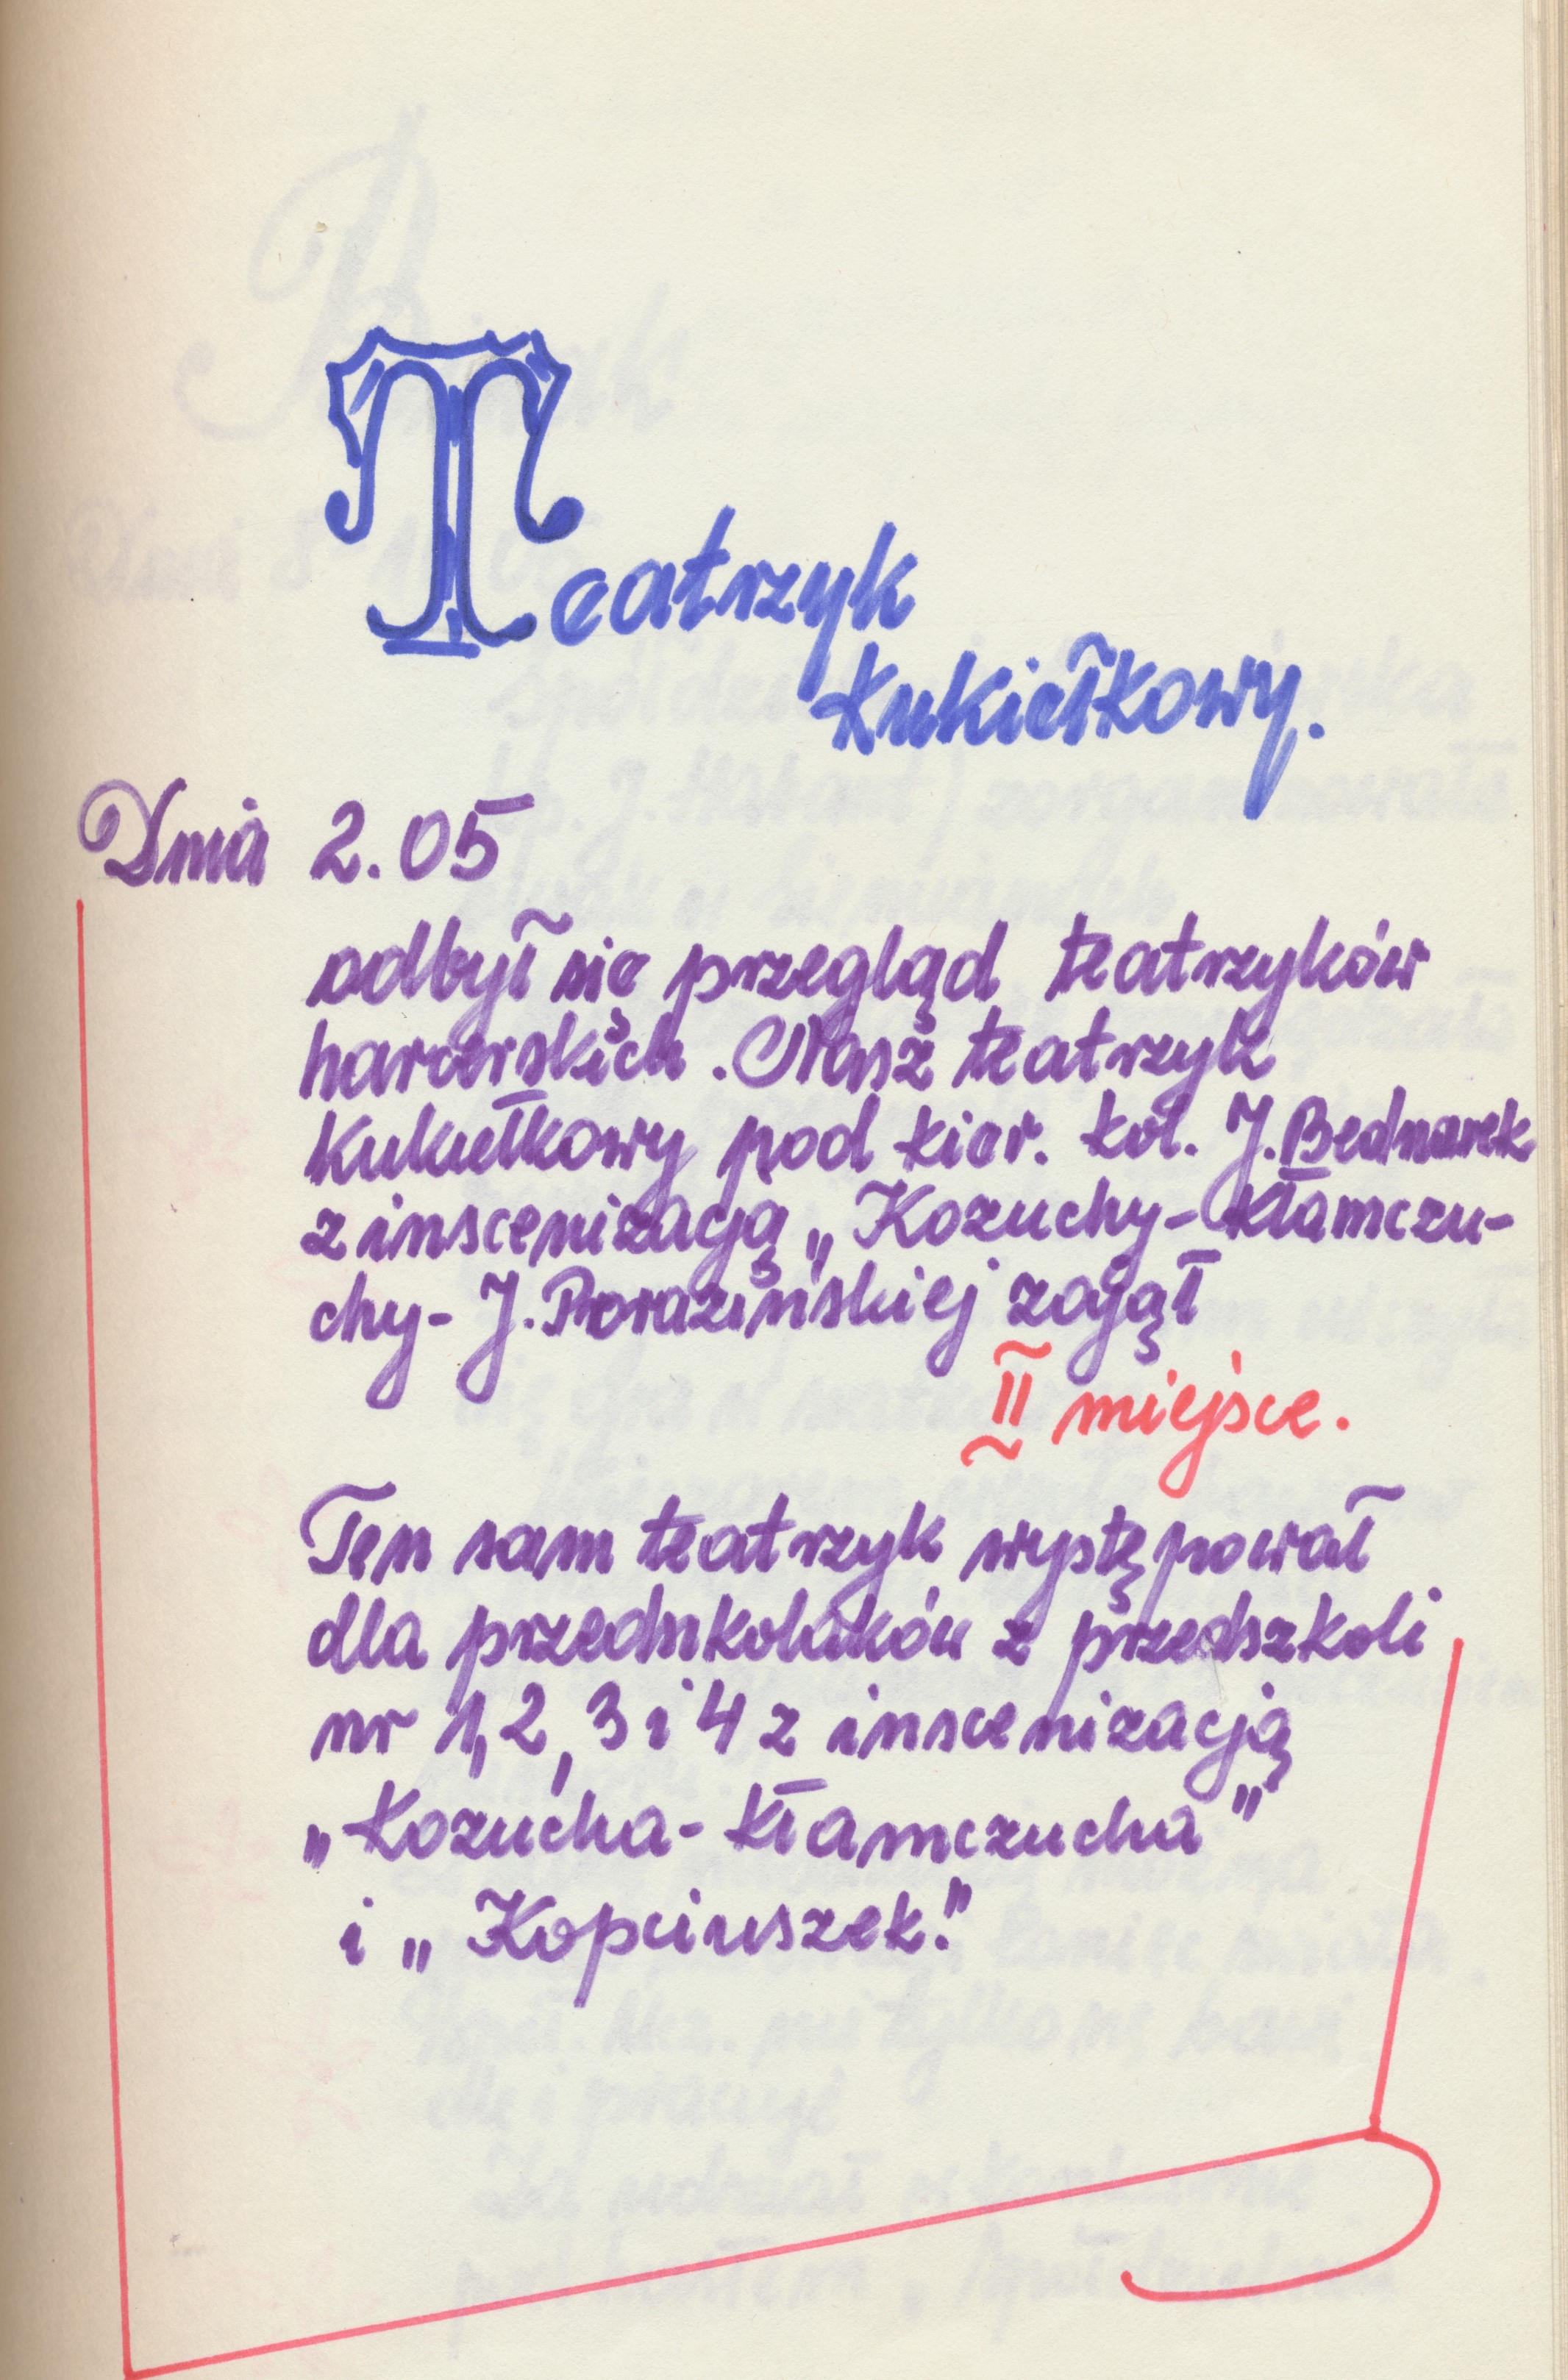 Teatrzyk
kukiełkowy.
Dnia 2.05
odbył się przegląd teatrzyków
harcerskich. Nasz teatrzyk
kukiełkowy pod kier. kol. J. Bednarek
z inscenizacją „Kozuchy-Kłamczu-
chy- J. Porazińskiej zajął
II miejsce.
Ten sam teatrzyk występował
dla przedszkolaków z przedszkoli
nr 1, 2, 3 i 4 z inscenizacją
„Kozucha-Kłamczucha"
i „Kopciuszek."